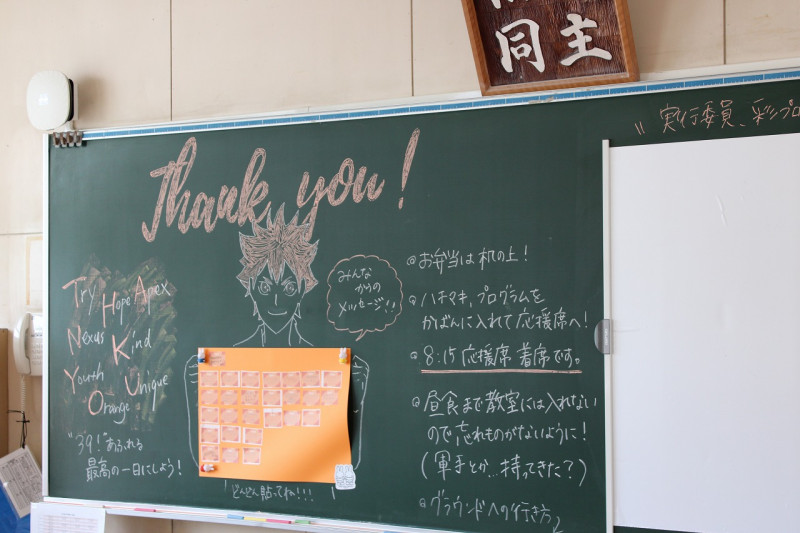 同主
〃実行委員、彩プロ
Thank you!
Try Hope Apex
Nexus Kind
Youth Unique
Orange
"39!"あふれる
最高の一日にしよう!
みんな
からの
メッセージ!!
どんどん貼ってね!!!
◎お弁当は机の上!
◎ハチマキ、プログラムを
かばんに入れて応援席へ!
◎8:15応援席着席です。
◎昼食まで教室には入れない
ので忘れものがないように!
(軍手とか…持ってきた?)
◎グラウンドへの行き方